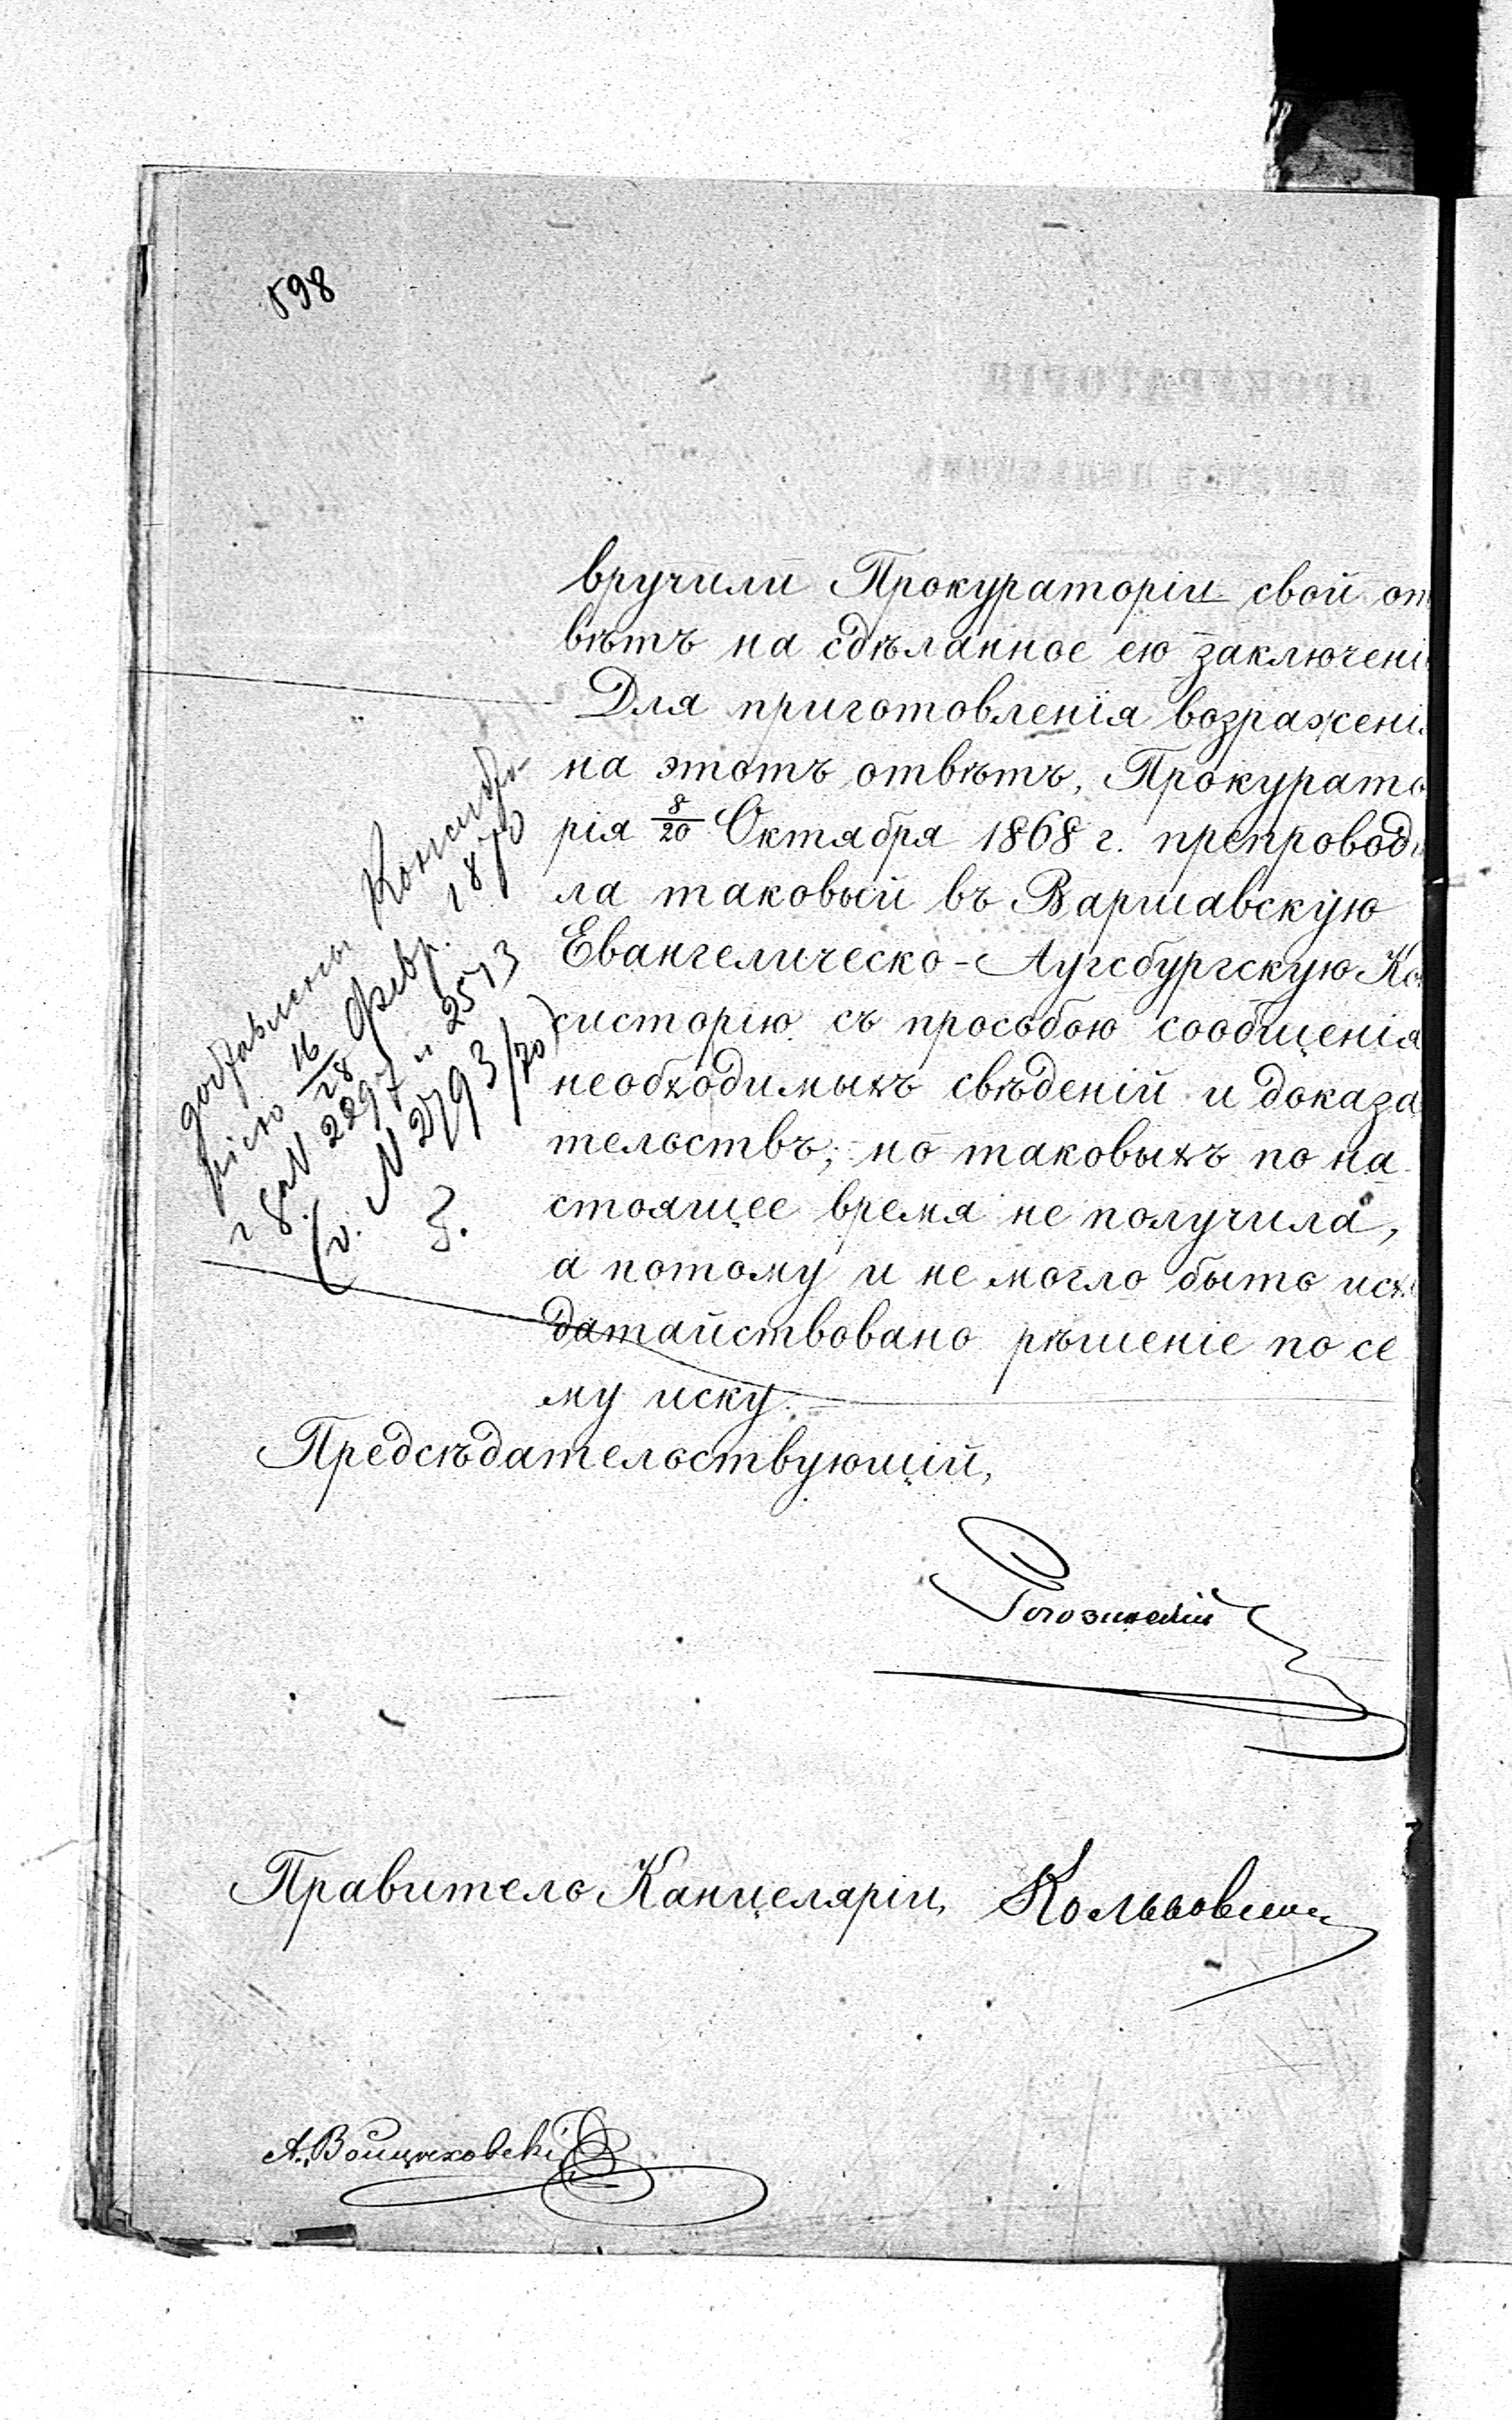 598
вручили Прокураторіи свой от
вѣтъ на сдѣланное ею заключені
Для приготовленія возражені
на этотъ отвѣтъ, Прокурато
рія 8/20 Октября 1868 г. препроводи
ла таковый въ Варшавскую
Евангелическо-Аугсбургскую Ко
систорію съ просьбою сообщенія
необходимыхъ свѣденій и доказа
тельствъ; но таковыхъ по на
стоящее время не получила,
а потому и не могло быть исх
датайствовано рѣшеніе по се
му иску.
доставлены Консисто-
ріею 16/28 Февр. 1870
г. N 2297 и 2573
(v. N 2793/70)
Предсѣдательствующій,
Рогозинскій
Правитель Канцеляріи,
А. Войцѣховскі